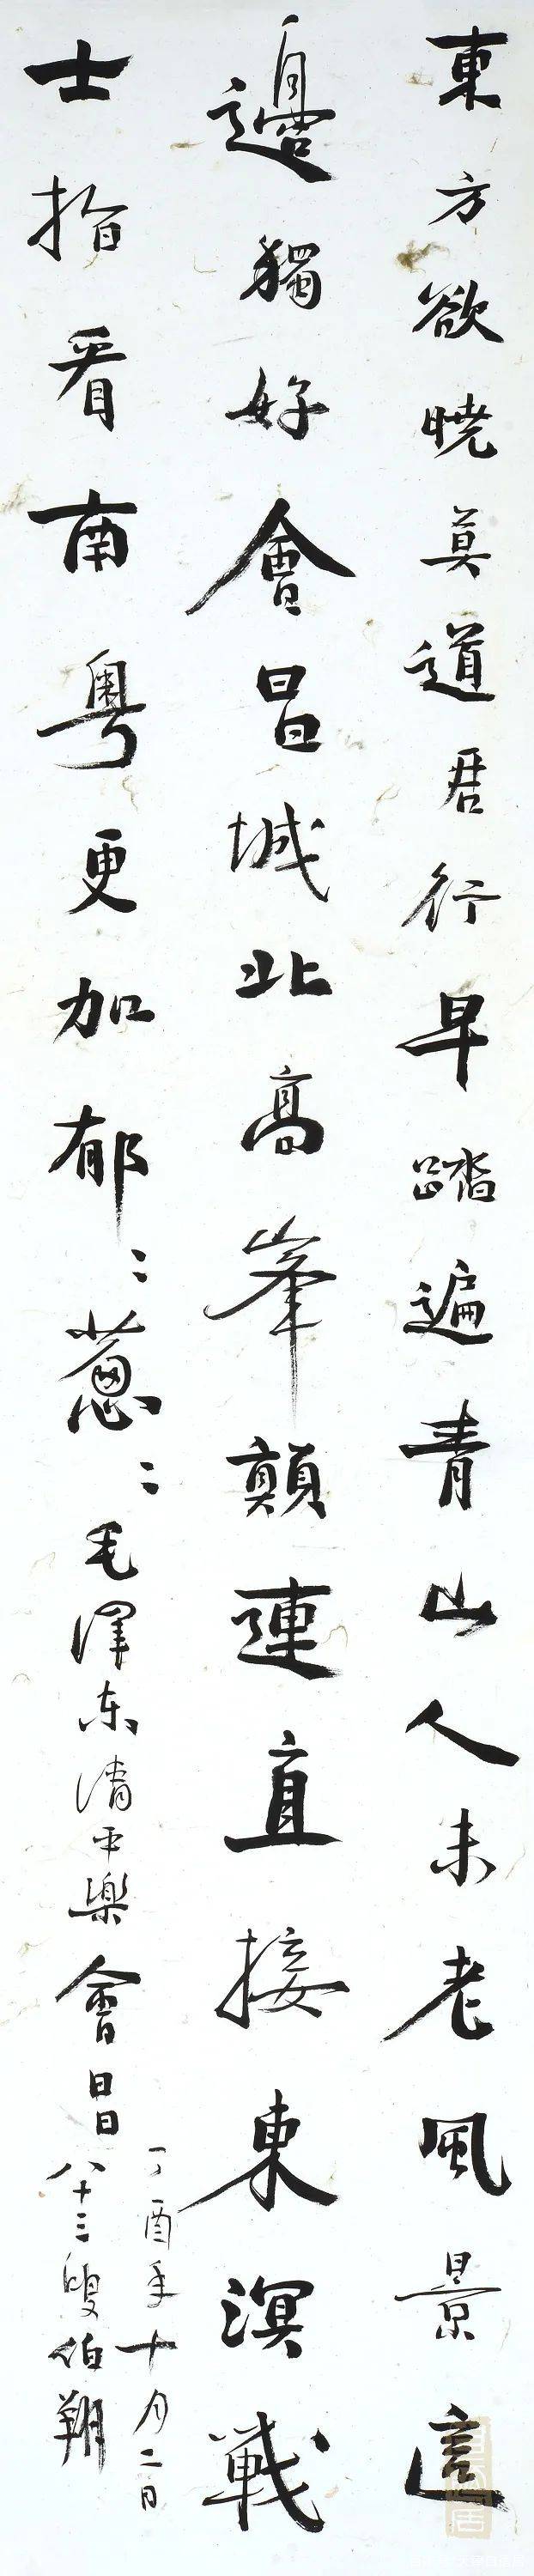 東方欲曉莫道君行早踏遍青山人未老風景這
邊獨好會昌城北高峯顛連直接東溟戰
士指看南粵更加郁〻蔥〻毛澤东清平樂會昌
丁酉年十月二日
八十三叟伯翔